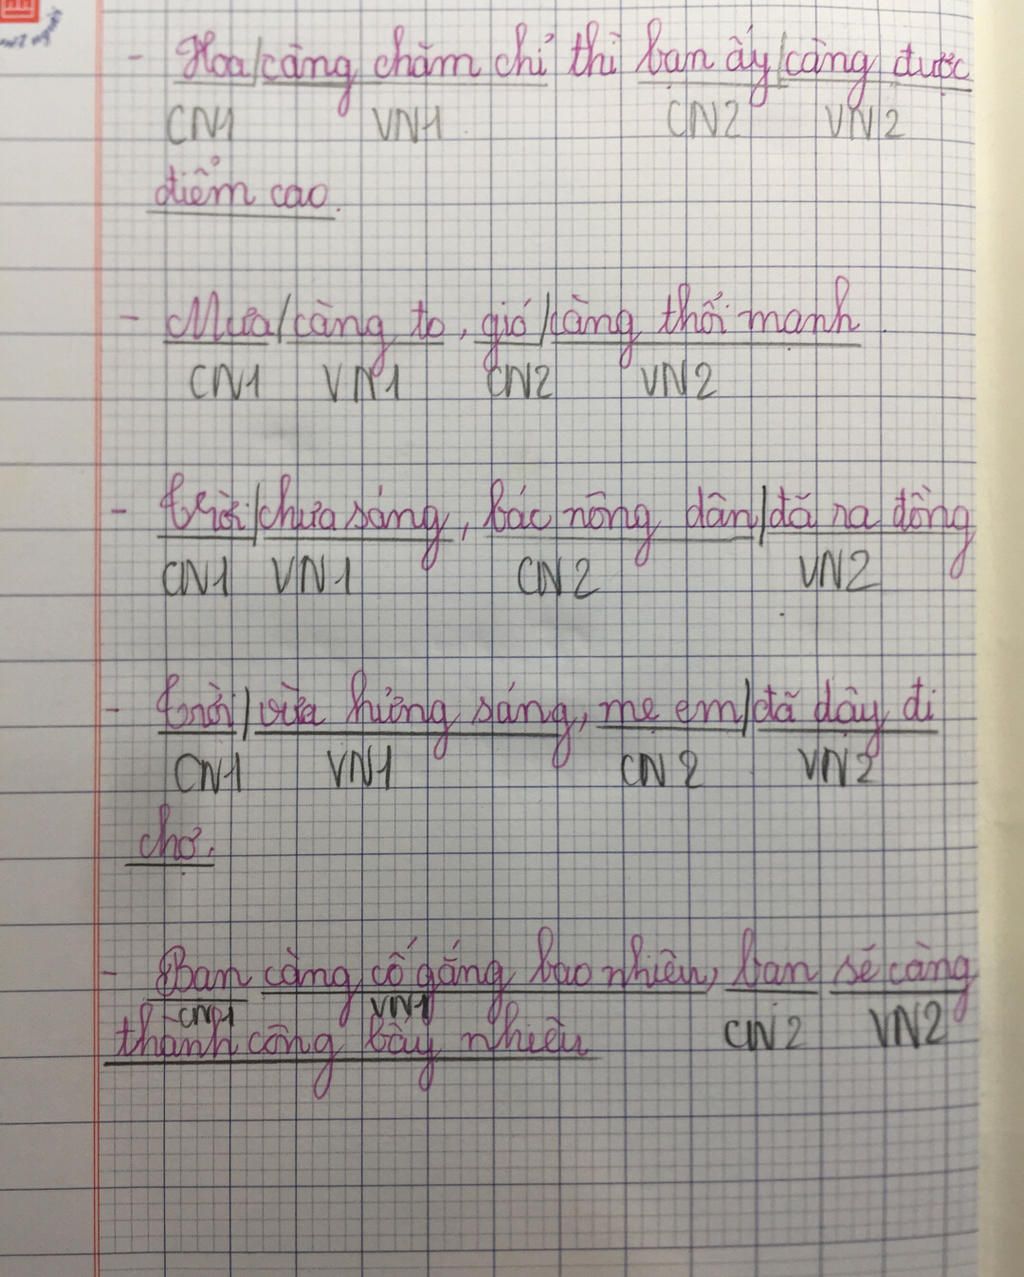 - Hoa/càng chăm chỉ thì bạn ấy/càng được
CN1 VN1 CN2 VN2
điểm cao.
- Mưa/càng to, gió/càng thổi mạnh.
CN1 VN1 CN2 VN2
- Trời/chưa sáng, bác nông dân/đã ra đồng
CN1 VN1 CN2 VN2
- Trời/vừa hửng sáng, mẹ em/đã dậy đi
CN1 VN1 CN2 VN2
chợ.
- Bạn càng cố gắng bao nhiêu, bạn sẽ càng
CN1 VN1 CN2 VN2
thành công bấy nhiêu